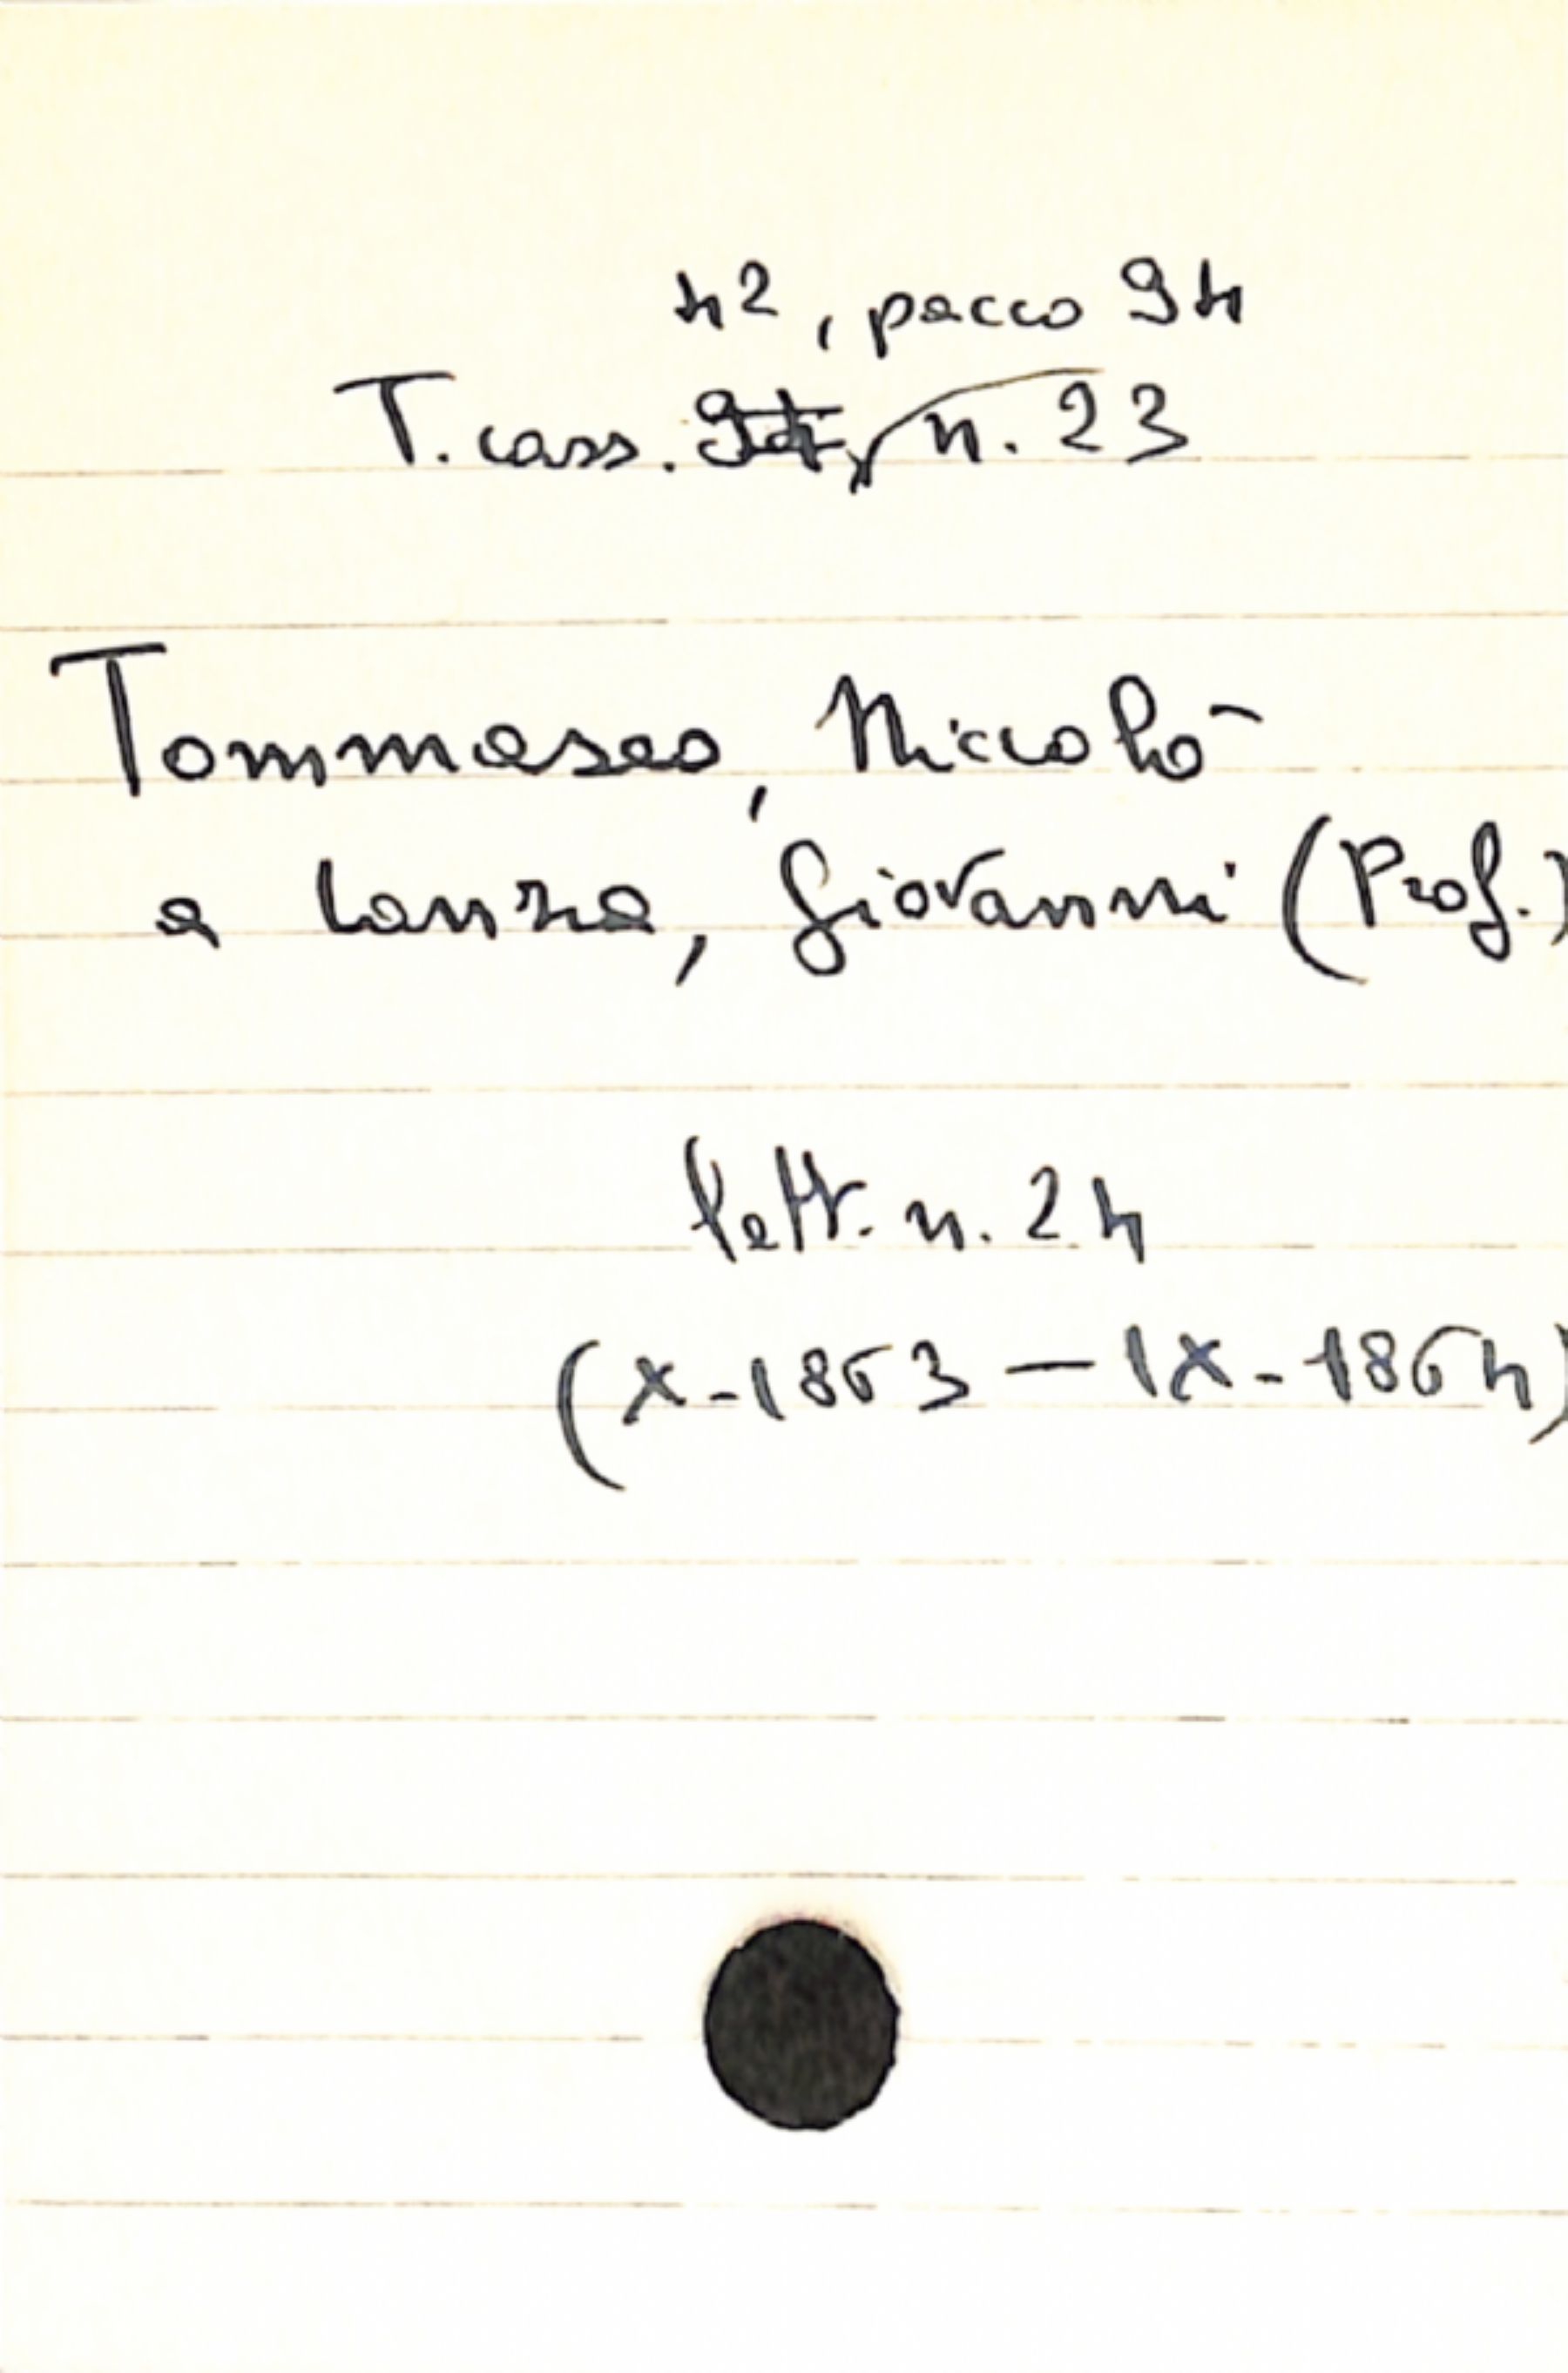 42, pacco 94
T. cass. 94, n. 23
Tommaseo, Niccolò
a Lanza, Giovanni (Prof.)
lett. n. 24
(X-1863 — IX-1864)